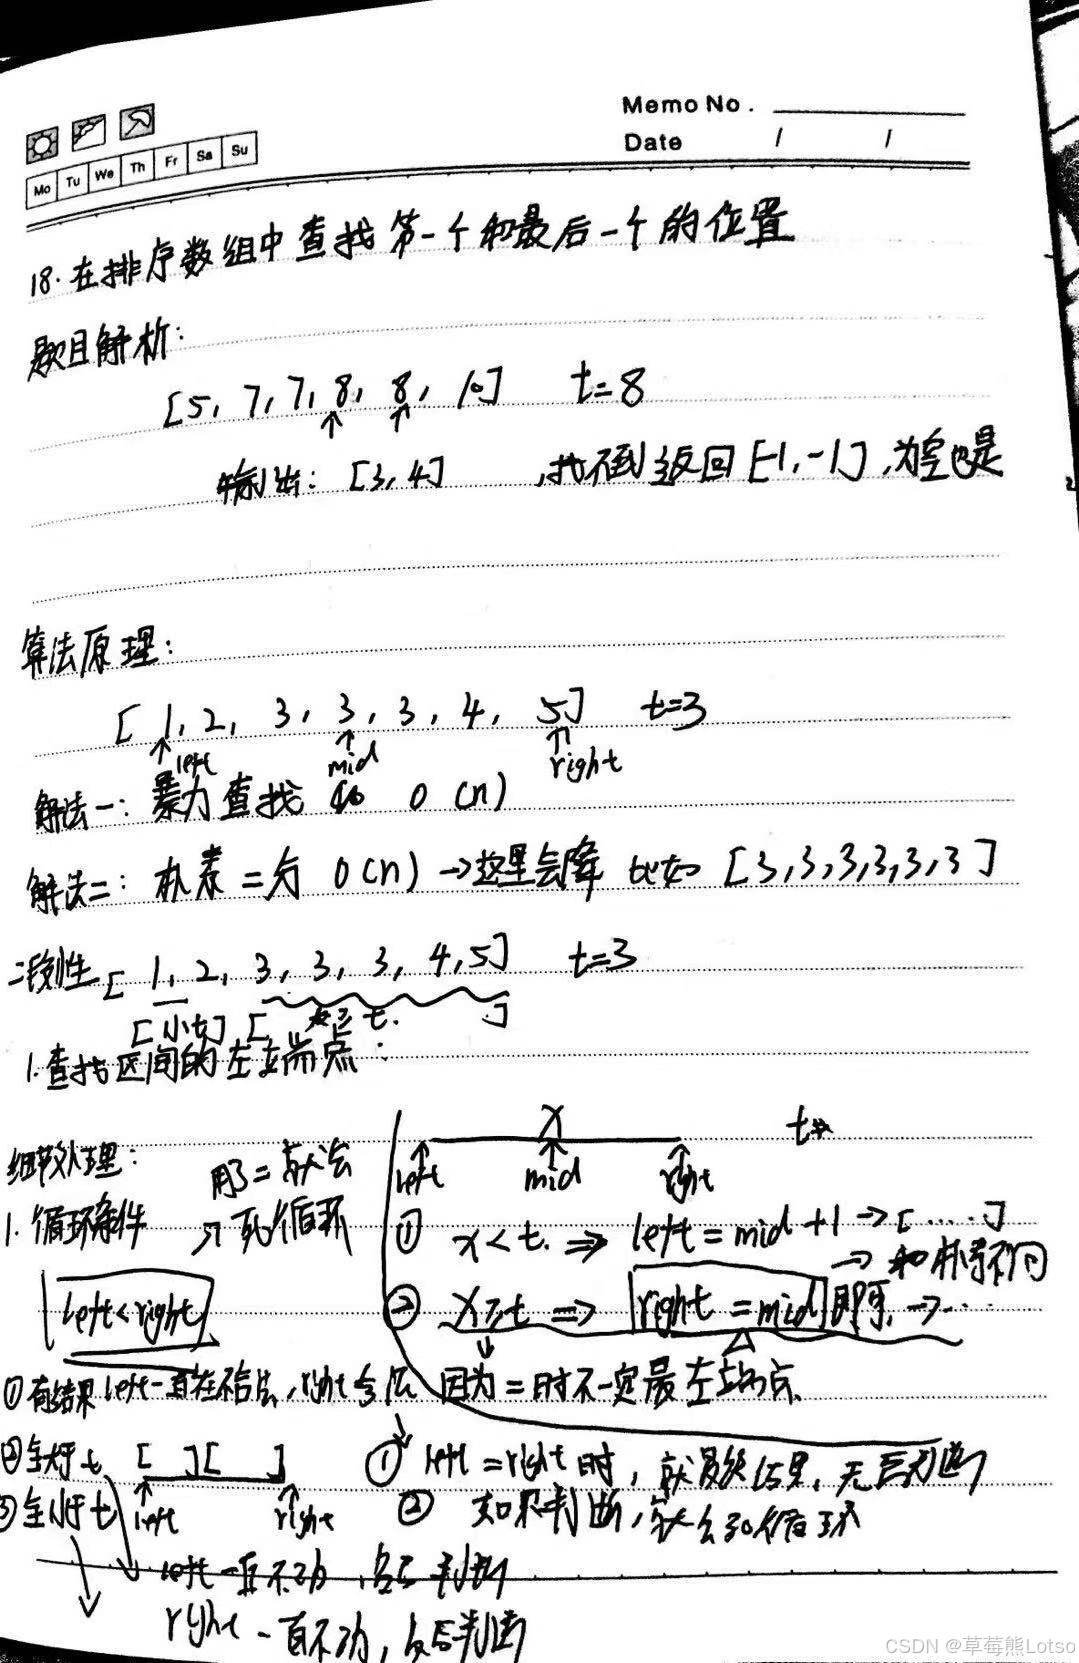 Memo No.
Date / /
Mo Tu We Th Fr Sa Su
18.在排序数组中查找第一个和最后一个的位置
题目解析:
[5, 7, 7, 8, 8, 10] t=8
输出: [3,4] ,找不到返回[-1,-1],为空也是
算法原理:
[ 1, 2, 3, 3, 3, 4, 5] t=3
left mid right
解法一: 暴力查找 O(n)
解法二: 朴素二分 O(n) →这里会降 比如 [3,3,3,3,3,3]
二段性 [ 1, 2, 3, 3, 3, 4,5] t=3
[小t] [ 大于 t. ]
1.查找区间的左端点:
x t
left mid right
细节处理: 用了=就会
1.循环条件 ↗死循环
left<right
① x<t. ⇒ left=mid+1→[....]
→和朴素不同
② x≥t ⇒ right=mid 即可, →...
因为=时不一定是最左端点
①有结果 left一直在不合法, right合法
②全大于t [ ][ ]
left right
③全小于t
① left=right时, 就是最终结果, 无需判断
② 如果判断, 就会死循环
left一直不动
right一直不动,
CSDN @草莓熊Lotso